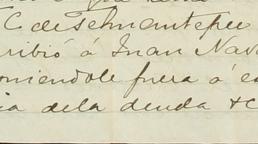 C de Temantepec
ribió á Juan Nav
oniendole fuera á ca
ia dela deuda &C